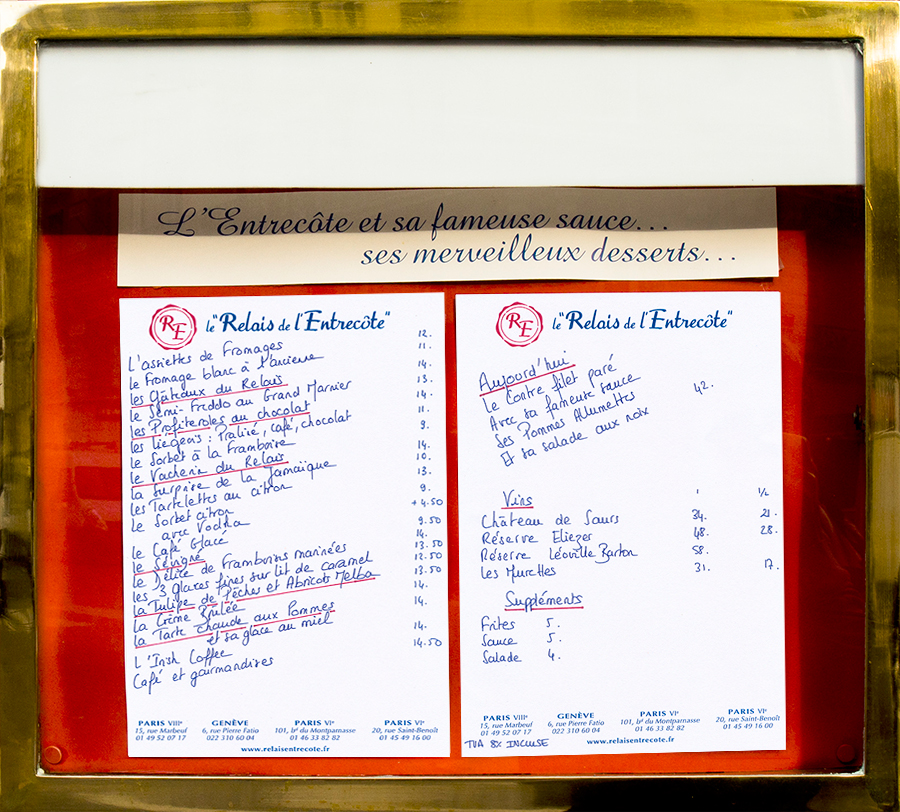 L'Entrecôte et sa fameuse sauce...
ses merveilleux desserts...
RE le "Relais de l'Entrecôte"
L'assiettes de Fromages 12.
le Fromage blanc à l'ancienne 11.
les Gâteaux du Relais 14.
le Semi-Freddo au Grand Marnier 13.
les Profiteroles au chocolat 14.
les Liégeois : Praliné, café, chocolat 11.
le Sorbet à la Framboise 9.
le Vacherin du Relais 14.
la Surprise de la Jamaïque 10.
les Tartelettes au citron 13.
le Sorbet citron 9.
avec Vodka + 4.50
le Café Glacé 9.50
le Sévigné 14.
le Délice de Framboises marinées 13.50
les 3 Glaces fines sur lit de caramel 12.50
la Tulipe de Pêches et Abricots Melba 13.50
la Crème Brûlée 14.
la Tarte chaude aux Pommes 14.
et sa glace au miel
L'Irish Coffee 14.
Café et gourmandises 14.50
PARIS VIIIe
15, rue Marbeuf
01 49 52 07 17
GENÈVE
6, rue Pierre Fatio
022 310 60 04
PARIS VIe
101, bd du Montparnasse
01 46 33 82 82
PARIS VIe
20, rue Saint-Benoît
01 45 49 16 00
www.relaisentrecote.fr
RE le "Relais de l'Entrecôte"
Aujourd'hui
Le Contre filet paré
Avec sa fameuse sauce 42.
Ses Pommes Allumettes
Et sa salade aux noix
Vins 1 1/2
Château de Saurs 34. 21.
Réserve Eliezer 48. 28.
Réserve Léoville Barton 58.
Les Murettes 31. 17.
Suppléments
Frites 5.
Sauce 5.
Salade 4.
PARIS VIIIe
15, rue Marbeuf
01 49 52 07 17
GENÈVE
6, rue Pierre Fatio
022 310 60 04
PARIS VIe
101, bd du Montparnasse
01 46 33 82 82
PARIS VIe
20, rue Saint-Benoît
01 45 49 16 00
TVA 8% INCLUSE
www.relaisentrecote.fr